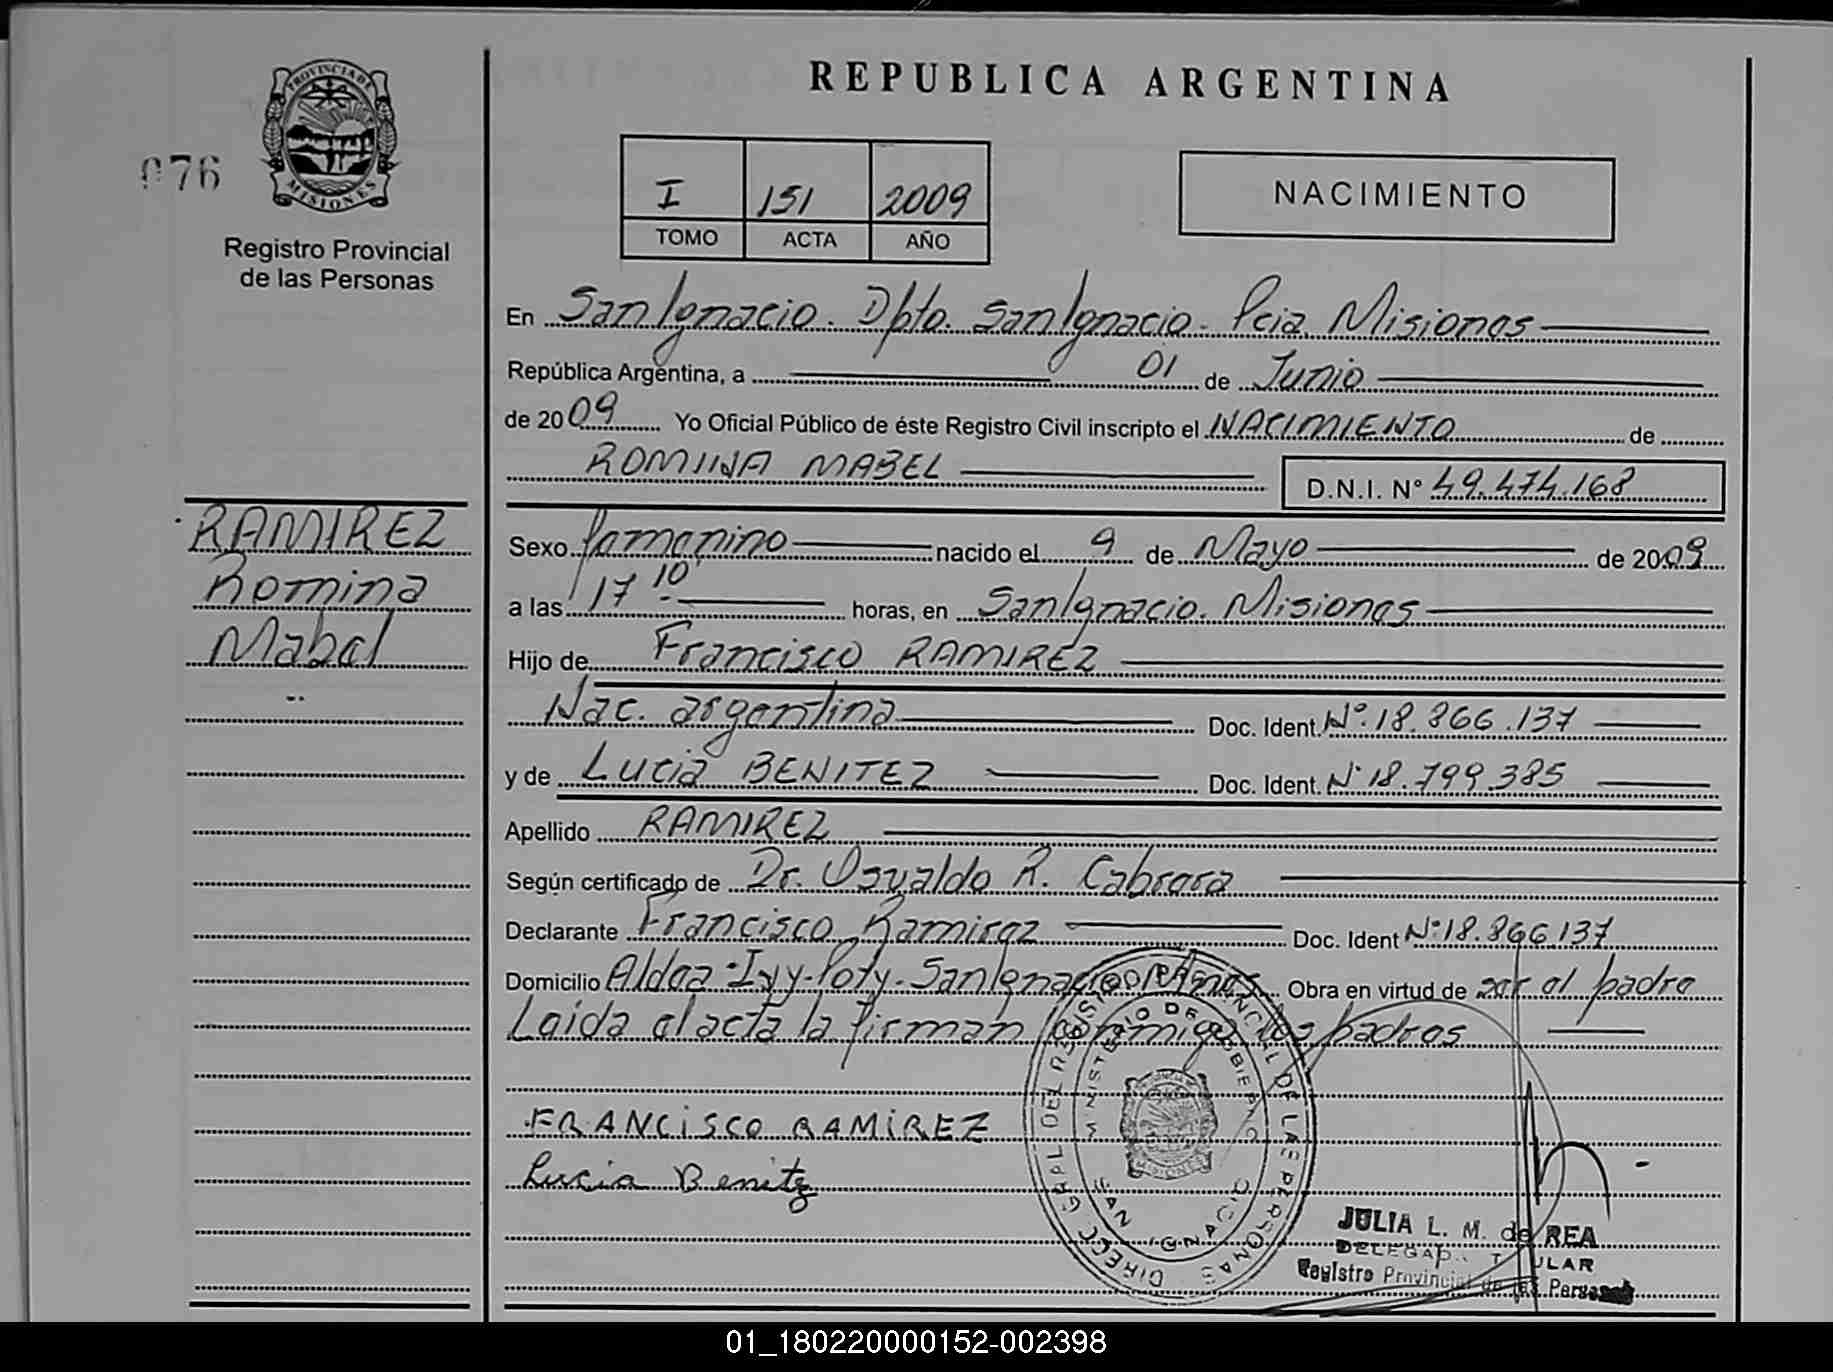 REPUBLICA ARGENTINA
PROVINCIA DE
MISIONES
076
Registro Provincial
de las Personas
I 151 2009
TOMO ACTA AÑO
NACIMIENTO
En San Ignacio. Dpto. San Ignacio. Pcia Misiones
República Argentina, a 01 de Junio
de 2009 Yo Oficial Público de éste Registro Civil inscripto el NACIMIENTO de
ROMINA MABEL D.N.I. N° 49.474.168
RAMIREZ
Romina
Mabel
Sexo femenino nacido el 9 de Mayo de 2009
a las 17 10 horas, en San Ignacio. Misiones
Hijo de Francisco RAMIREZ
Nac. argentina Doc. Ident. N°. 18.866.137
y de Lucia BENITEZ Doc. Ident. N° 18.799.385
Apellido RAMIREZ
Según certificado de Dr. Osvaldo R. Cabrera
Declarante Francisco Ramirez Doc. Ident N° 18.866.137
Domicilio Aldea Ivy-Poty. San Ignacio Mnes Obra en virtud de ser el padre
Leida el acta la firman conmigo los padres
FRANCISCO RAMIREZ
Lucia Benitz
DIRECC GRAL DEL REGISTRO PROVINCIAL DE LAS PERSONAS
MINISTERIO DE GOBIERNO
MISIONES
SAN IGNACIO
JULIA L. M. de REA
DELEGADA TITULAR
Registro Provincial de las Personas
01_180220000152-002398